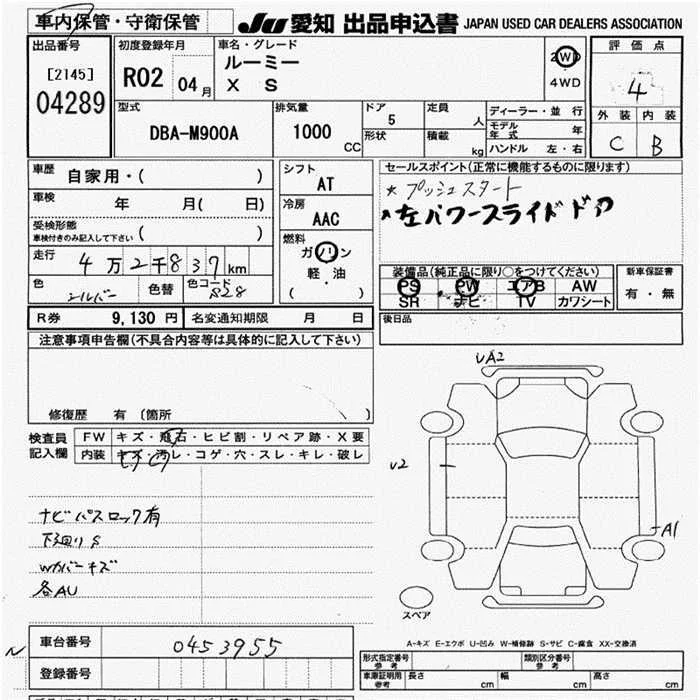 車内保管・守衛保管 JU 愛知 出品申込書 JAPAN USED CAR DEALERS ASSOCIATION
出品番号 初度登録年月 車名・グレード 評価点
[2145] R02 04月 ルーミー 2WD 4
04289 X S 4WD
型式 排気量 ドア 定員 ディーラー・並行 外装 内装
DBA-M900A 1000 CC 5 人 モデル年式 年 C B
形状 積載 kg ハンドル 左・右
車歴 自家用・( ) シフト AT セールスポイント(正常に機能するものに限ります)
車検 年 月( 日) 冷房 AAC プッシュスタート
受検形態 車検付きのみ記入して下さい ( ) 左パワースライドドア
走行 4万2千837km 燃料 ガソリン 軽・油 ( )
色 シルバー 色替 色コード S28
装備品(純正品に限り○をつけてください) 新車保証書
PS PW エアB AW 有・無
SR ナビ TV カワシート
R券 9,130円 名変通知期限 月 日 後日品
注意事項申告欄(不具合内容等は具体的に記入して下さい)
修復歴 有 〔箇所 〕
検査員記入欄 FW キズ・飛石・ヒビ割・リペア跡・X要
内装 キズ・汚レ・コゲ・穴・スレ・キレ・破レ
UA2
U2
A1
ナビパスロック有
下廻りS
Wカバーキズ
各AU
スペア
A-キズ E-エクボ U-凹み W-補修跡 S-サビ C-腐食 XX-交換済
N 車台番号 0453955
登録番号
形式指定番号 参考 類別区分番号 参考
車庫証明用 参考 長さ cm 幅 cm 高さ cm